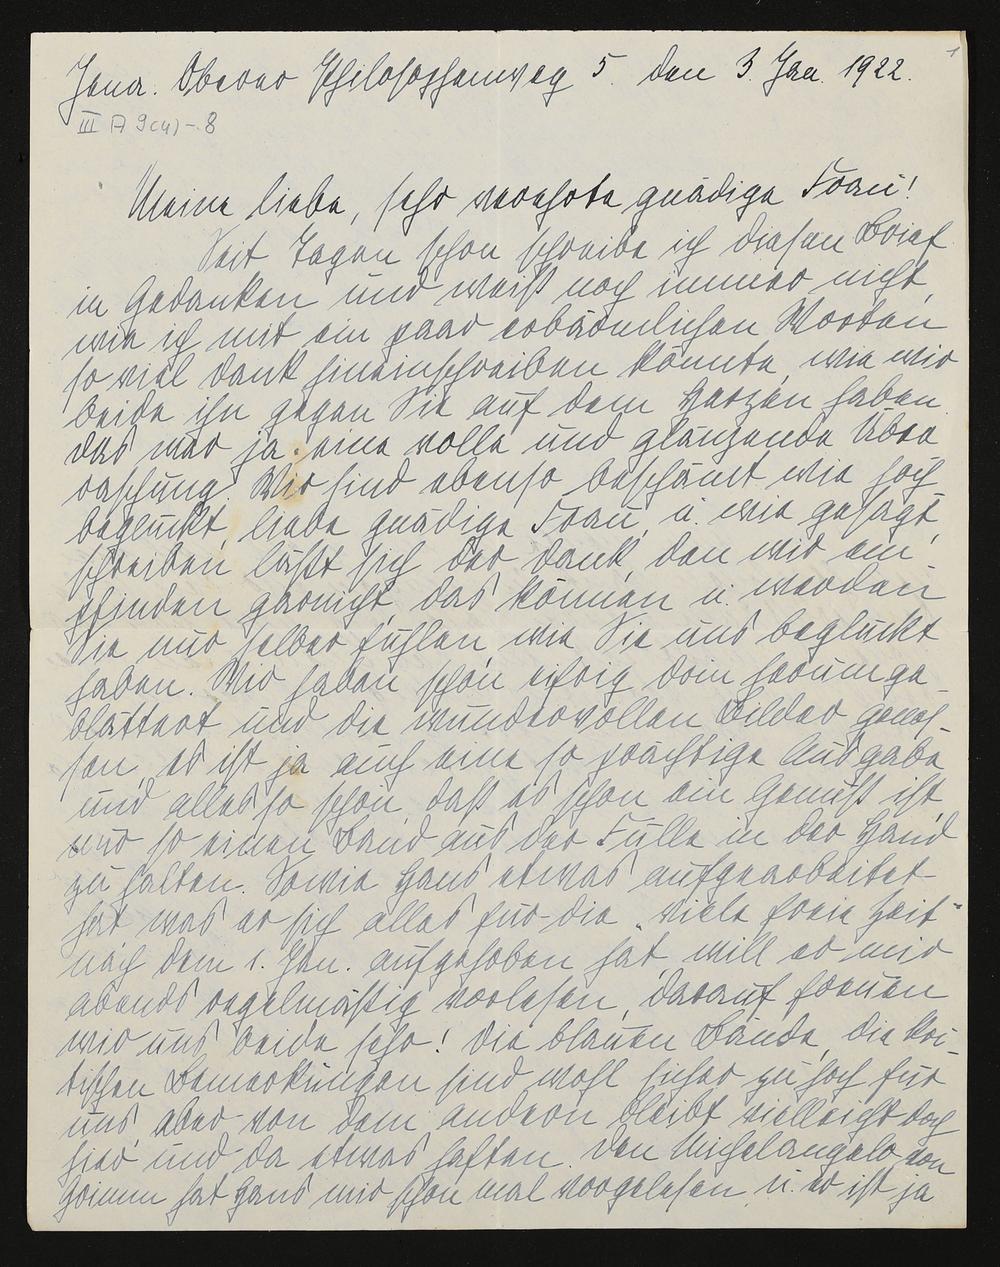 Jena. Oberer Philosophenweg 5. den 3. Jan. 1922.
1
III A 9(4)-8
Meine liebe, sehr verehrte gnädige Frau!
Seit Tagen schon schreibe ich diesen Brief
in Gedanken und weiß noch immer nicht,
wie ich mit ein paar erbärmlichen Worten
so viel Dank hineinschreiben könnte, wie wir
beide ihn gegen Sie auf dem Herzen haben.
Das war ja eine volle und glänzende Über
raschung! Wir sind ebenso beschämt wie hoch
beglückt, liebe gnädige Frau, u. wie gesagt,
schreiben läßt sich der Dank, den wir em
pfinden garnicht, das können u. werden
Sie nur selber fühlen, wie Sie uns beglückt
haben. Wir haben schon eifrig drin herumge
blättert und die wundervollen Bilder genos-
sen, es ist ja auch eine so prächtige Ausgabe
und alles so schön, daß es schon ein Genuß ist,
nur so einen Band aus der Fülle in der Hand
zu halten. Sowie Hans etwas aufgearbeitet
hat was er sich alles für die "viele freie Zeit"
nach dem 1. Jan. aufgehoben hat, will er mir
abends regelmäßig vorlesen, darauf freuen
wir uns beide sehr! Die blauen Bände, die kri-
tischen Bemerkungen sind wohl sicher zu hoch für
uns, aber von dem andern bleibt vielleicht doch
hier und da etwas haften. Den Michelangelo von
Grimm hat Hans mir schon mal vorgelesen u. er ist ja